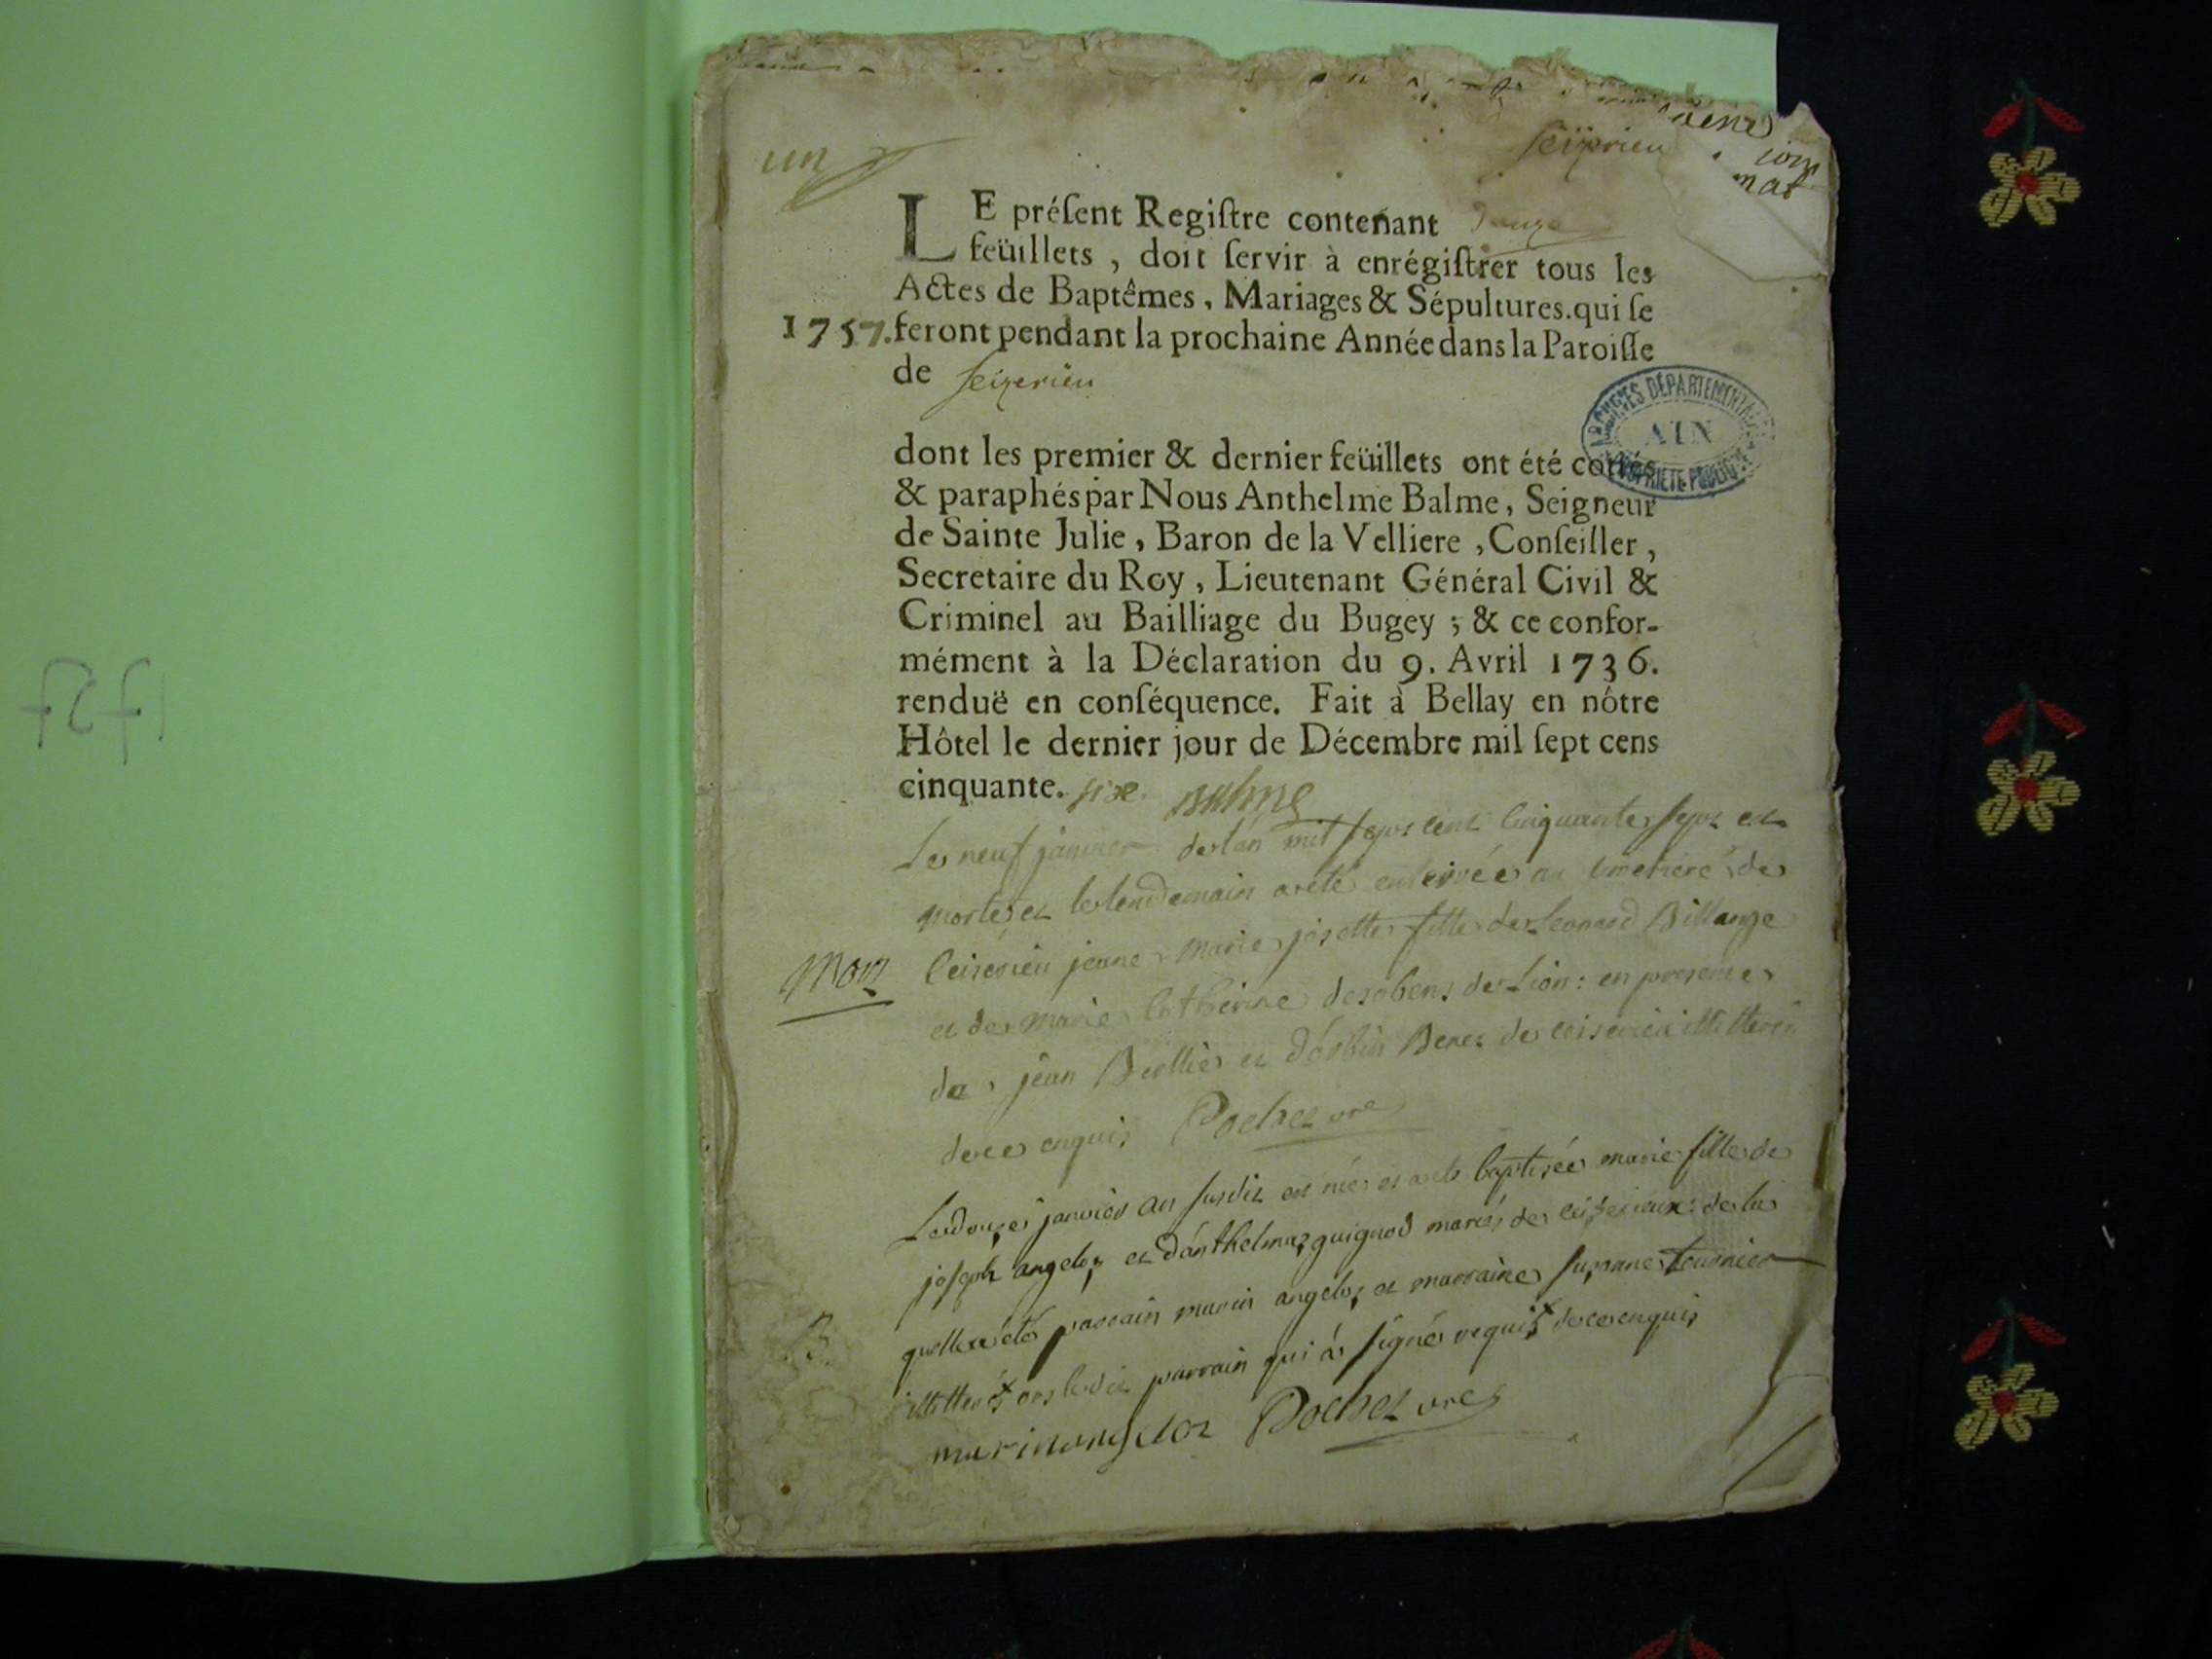 un
seizerieu
LE préſent Regiſtre contenant douze
feüillets , doit ſervir à enrégiſtrer tous les
Actes de Baptêmes, Mariages & Sépultures.qui ſe
1757. feront pendant la prochaine Année dans la Paroiſſe
de Seizerieu
ARCHIVES DÉPARTEMENTALES
AIN
PROPRIÉTÉ PUBLIQUE
dont les premier & dernier feüillets ont été cottés
& paraphés par Nous Anthelme Balme, Seigneur
de Sainte Julie, Baron de la Velliere, Conſeiller,
Secretaire du Roy, Lieutenant Général Civil &
Criminel au Bailliage du Bugey ; & ce confor-
mément à la Déclaration du 9. Avril 1736.
renduë en conſéquence. Fait à Bellay en nôtre
Hôtel le dernier jour de Décembre mil ſept cens
cinquante. six. Balme
Le neuf janvier de l'an mil sept cent cinquante sept est
morte et le lendemain a eté enterrée au cimetiere de
Mort Ceiserieu jeane marie josette fille de Leonard Billange
et de marie Catherine de Lion: en presence
de jean et de ceiserieu illitteres
de ce enquis Pochet vre
Le douze janvier an susdit est née et a eté baptisée marie fille de
joseph angelot et d'anthelmaz guignod mariés de ceiserieux: de la
quelle a été parrain marin angelot et marraine suzanne tournier
B.
illitteres ors ledit parrain qui à signé requis de ce enquis
marin angelot Pochet vre
1757